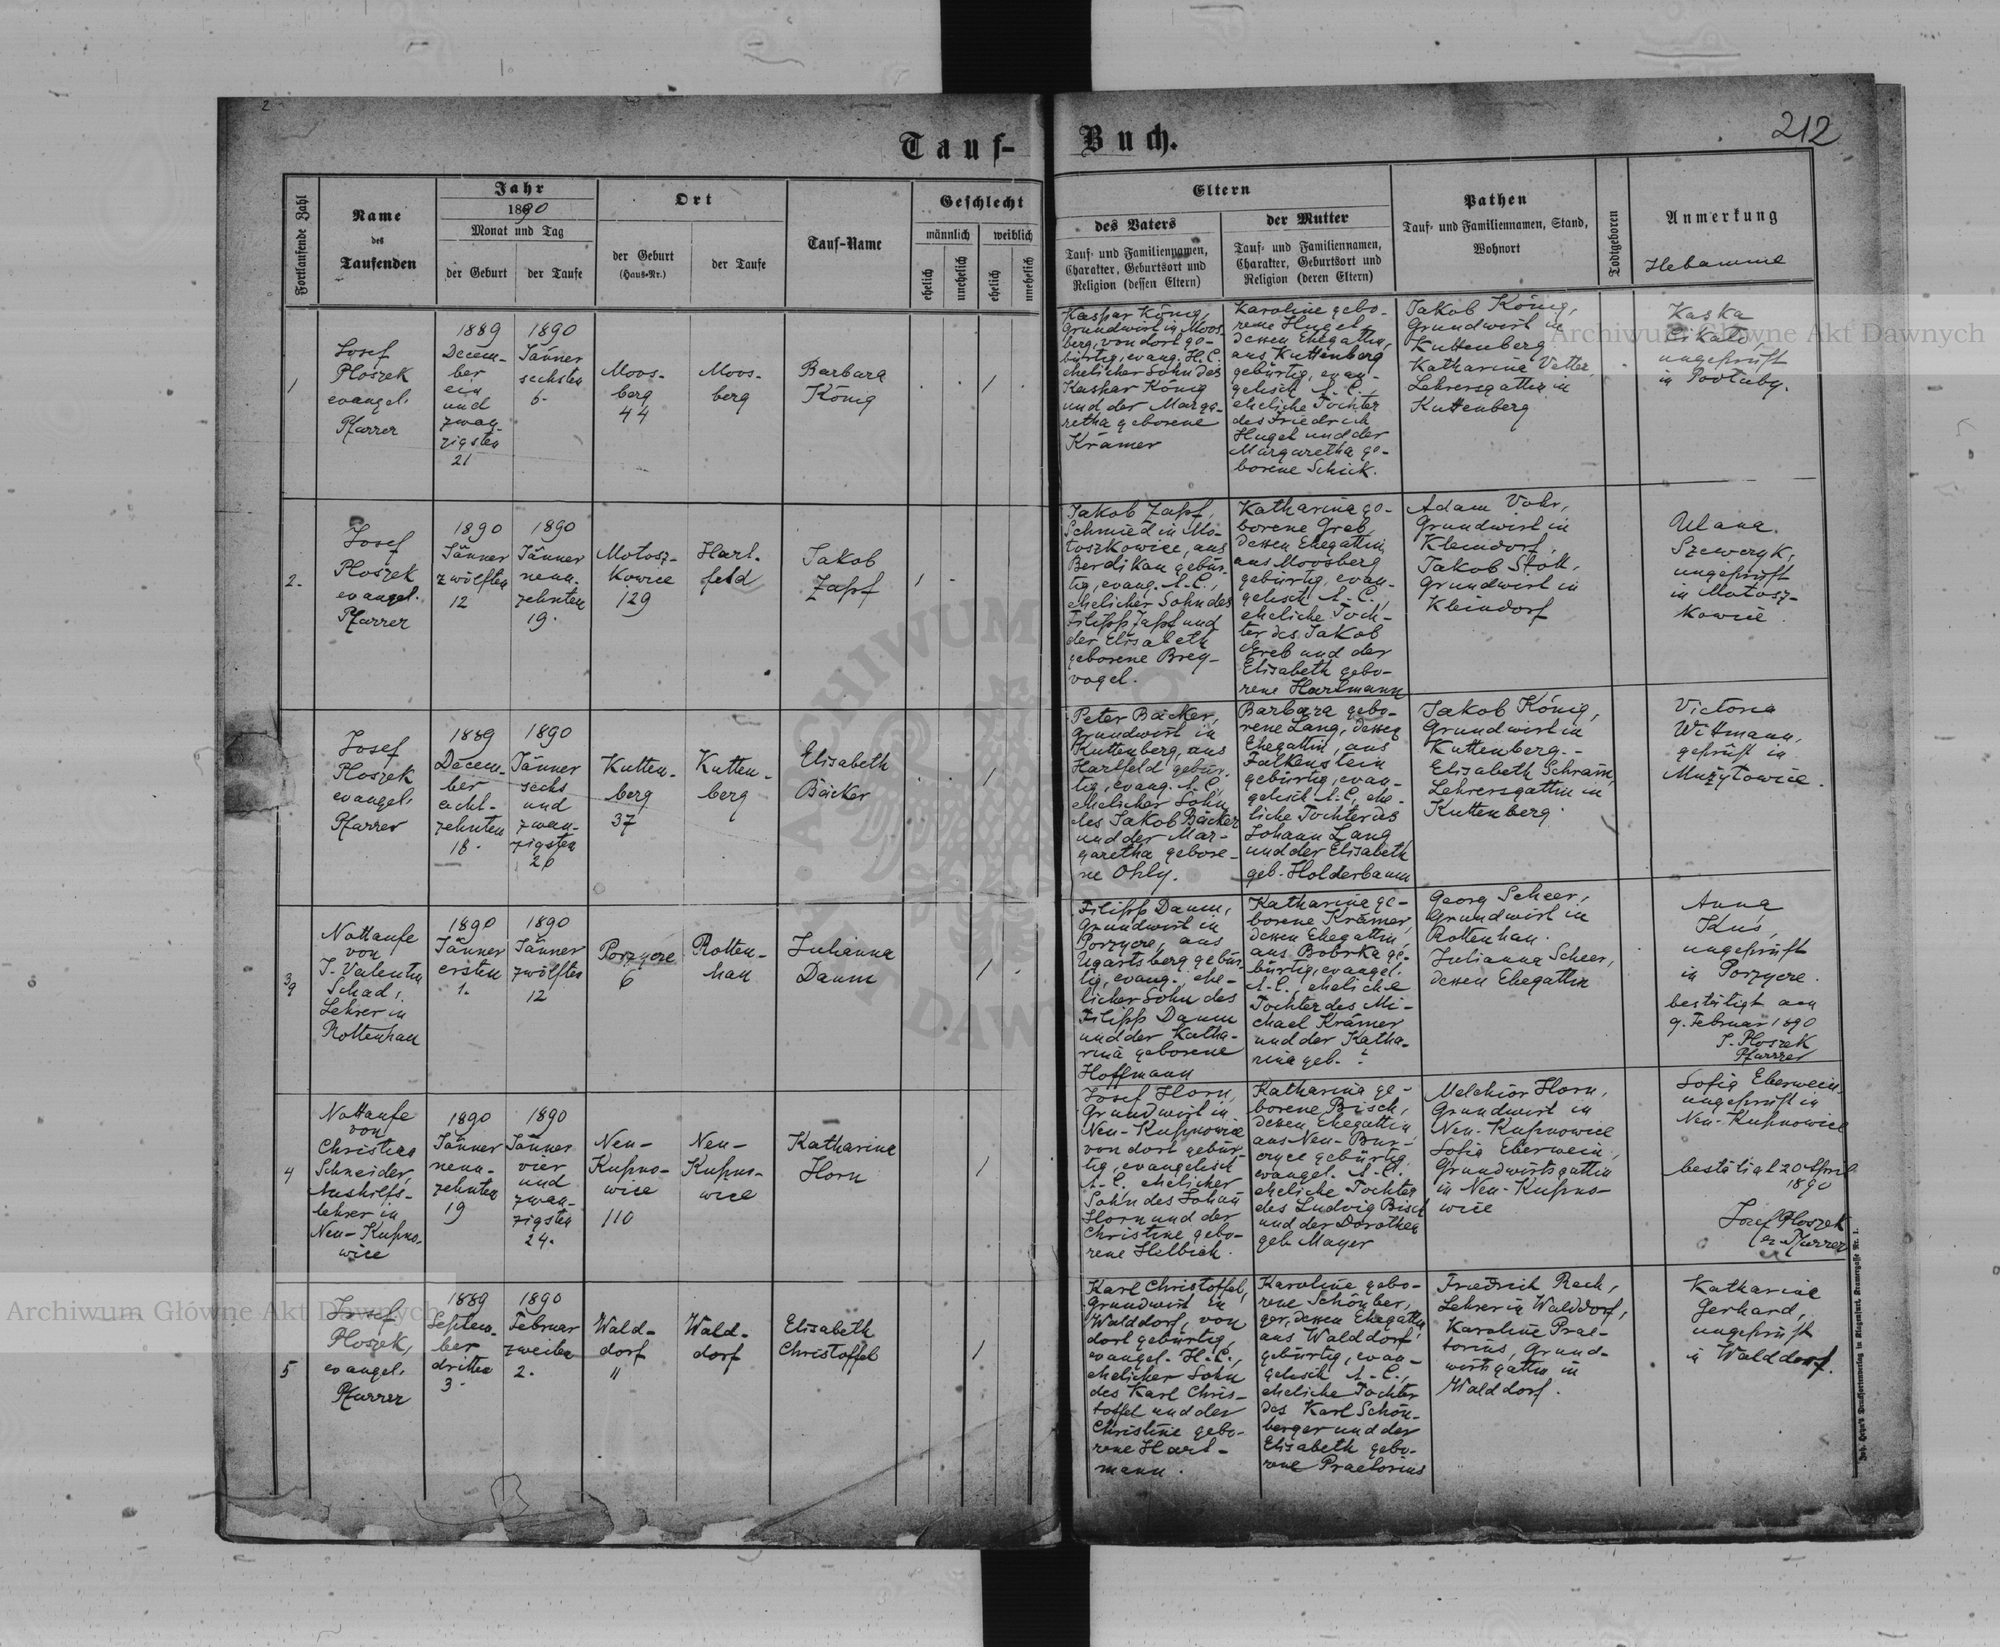 2
Tauf-Buch.
212
Fortlaufende Zahl
Name
des
Taufenden
Jahr
1890
Monat und Tag
der Geburt
der Taufe
Ort
der Geburt
(Haus-Nr.)
der Taufe
Tauf-Name
Geschlecht
männlich
weiblich
ehelich
unehelich
ehelich
unehelich
Eltern
des Vaters
Tauf- und Familiennamen,
Charakter, Geburtsort und
Religion (dessen Eltern)
der Mutter
Tauf- und Familiennamen,
Charakter, Geburtsort und
Religion (deren Eltern)
Pathen
Tauf- und Familiennamen, Stand,
Wohnort
Todtgeboren
Anmerkung
Hebamme
1
Josef
Ploszek
evangel.
Pfarrer
1889
Decem-
ber
ein
und
zwan-
zigsten
21
1890
Jänner
sechsten
6.
Moos-
berg
44
Moos-
berg
Barbara
König
1
Kaspar König,
Grundwirt in Moos-
berg, von dort ge-
bürtig, evang. H.C.
ehelicher Sohn des
Kaspar König
und der Marga-
retha geborene
Krämer
Karoline gebo-
rene Hugel,
dessen Ehegattin,
aus Kuttenberg
gebürtig, evan-
gelisch A.C.
eheliche Tochter
des Friedrich
Hugel und der
Margaretha ge-
borene Schick.
Jakob König,
Grundwirt in
Kuttenberg
Katharina Vetter
Lehrersgattin in
Kuttenberg
Kaska
ungeprüft
in Podłuby.
2.
Josef
Ploszek
evangel.
Pfarrer
1890
Jänner
zwölften
12
1890
Jänner
neun-
zehnten
19.
Motosz-
kowice
129
Hart-
feld
Jakob
Zapf
1
Jakob Zapf,
Schmied in Mo-
toszkowice, aus
Berdikau gebür-
tig, evang. A.C.,
ehelicher Sohn des
Filipp Zapf und
der Elisabeth
geborene Brey-
vogel.
Katharina ge-
borene Greb,
dessen Ehegattin,
aus Moosberg
gebürtig, evan-
gelisch A.C.,
eheliche Toch-
ter des Jakob
Greb und der
Elisabeth gebo-
rene Hartmann
Adam Vohr,
Grundwirt in
Kleindorf.
Jakob Stoll,
Grundwirt in
Kleindorf
Ulana
Szewczyk,
ungeprüft
in Motosz-
kowice.
3
Josef
Ploszek
evangel.
Pfarrer
1889
Decem-
ber
acht-
zehnten
18.
1890
Jänner
sechs
und
zwan-
zigsten
26
Kutten-
berg
37
Kutten-
berg
Elisabeth
Bäcker
1
Peter Bäcker,
Grundwirt in
Kuttenberg, aus
Hartfeld gebür-
tig, evang. A.C.,
ehelicher Sohn
des Jakob Bäcker
und der Mar-
garetha gebore-
ne Ohly.
Barbara gebo-
rene Lang, dessen
Ehegattin, aus
Falkenstein
gebürtig, evan-
gelisch A.C., ehe-
liche Tochter des
Johann Lang
und der Elisabeth
geb. Holderbaum
Jakob König,
Grundwirt in
Kuttenberg.-
Elisabeth Schram,
Lehrersgattin in
Kuttenberg.
Victoria
Wittmann,
geprüft in
Mużyłowice.
Nottaufe
von
J. Valentin
Schad,
Lehrer in
Rottenhan
1890
Jänner
ersten
1.
1890
Jänner
zwölften
12
Porzycze
6
Rotten-
han
Julianna
Daum
1
Filipp Daum,
Grundwirt in
Porzycze, aus
Ugartsberg gebür-
tig, evang., ehe-
licher Sohn des
Filipp Daum
und der Katha-
rina geborene
Hoffmann
Katharina ge-
borene Krämer,
dessen Ehegattin,
aus Bobrka ge-
bürtig, evangel.
A.C., eheliche
Tochter des Mi-
chael Krämer
und der Katha-
rina geb. ?
Georg Scheer,
Grundwirt in
Rottenhan.
Julianna Scheer,
dessen Ehegattin
Anna
Kuś,
ungeprüft
in Porzycze.
bestätigt am
9. Februar 1890
J. Ploszek
Pfarrer
4
Nottaufe
von
Christian
Schneider,
Aushilfs-
lehrer in
Neu-Kupno-
wice
1890
Jänner
neun-
zehnten
19
1890
Jänner
vier
und
zwan-
zigsten
24.
Neu-
Kupno-
wice
110
Neu-
Kupno-
wice
Katharina
Horn
1
Josef Horn,
Grundwirt in
Neu-Kupnowice
von dort gebür-
tig, evangelisch
A.C. ehelicher
Sohn des Johann
Horn und der
Christine gebo-
rene Helbich.
Katharina ge-
borene Bisch,
dessen Ehegattin
aus Neu-Bur-
czyce gebürtig
evangel. A.C.
eheliche Tochter
des Ludwig Bisch
und der Dorothea
geb. Mayer
Melchior Horn,
Grundwirt in
Neu-Kupnowice
Sofia Eberwein,
Grundwirtsgattin
in Neu-Kupno-
wice
Sofia Eberwein,
ungeprüft in
Neu-Kupnowice
bestätigt 20 April
1890
Josef Ploszek
ev. Pfarrer
5
Josef
Ploszek,
evangel.
Pfarrer
1889
Septem-
ber
dritten
3.
1890
Februar
zweiten
2.
Wald-
dorf
11
Wald-
dorf
Elisabeth
Christoffel
1
Karl Christoffel,
Grundwirt in
Walddorf, von
dort gebürtig,
evangel. H.C.,
ehelicher Sohn
des Karl Chris-
toffel und der
Christine gebo-
rene Hart-
mann.
Karoline gebo-
rene Schönber-
ger, dessen Ehegattin,
aus Walddorf
gebürtig, evan-
gelisch A.C.,
eheliche Tochter
des Karl Schön-
berger und der
Elisabeth gebo-
rene Praetorius
Friedrich Rech,
Lehrer in Walddorf,
Karoline Prae-
torius, Grund-
wirtsgattin in
Walddorf.
Katharina
Gerhard,
ungeprüft
in Walddorf.
Archiwum Główne Akt Dawnych
Archiwum Główne Akt Dawnych